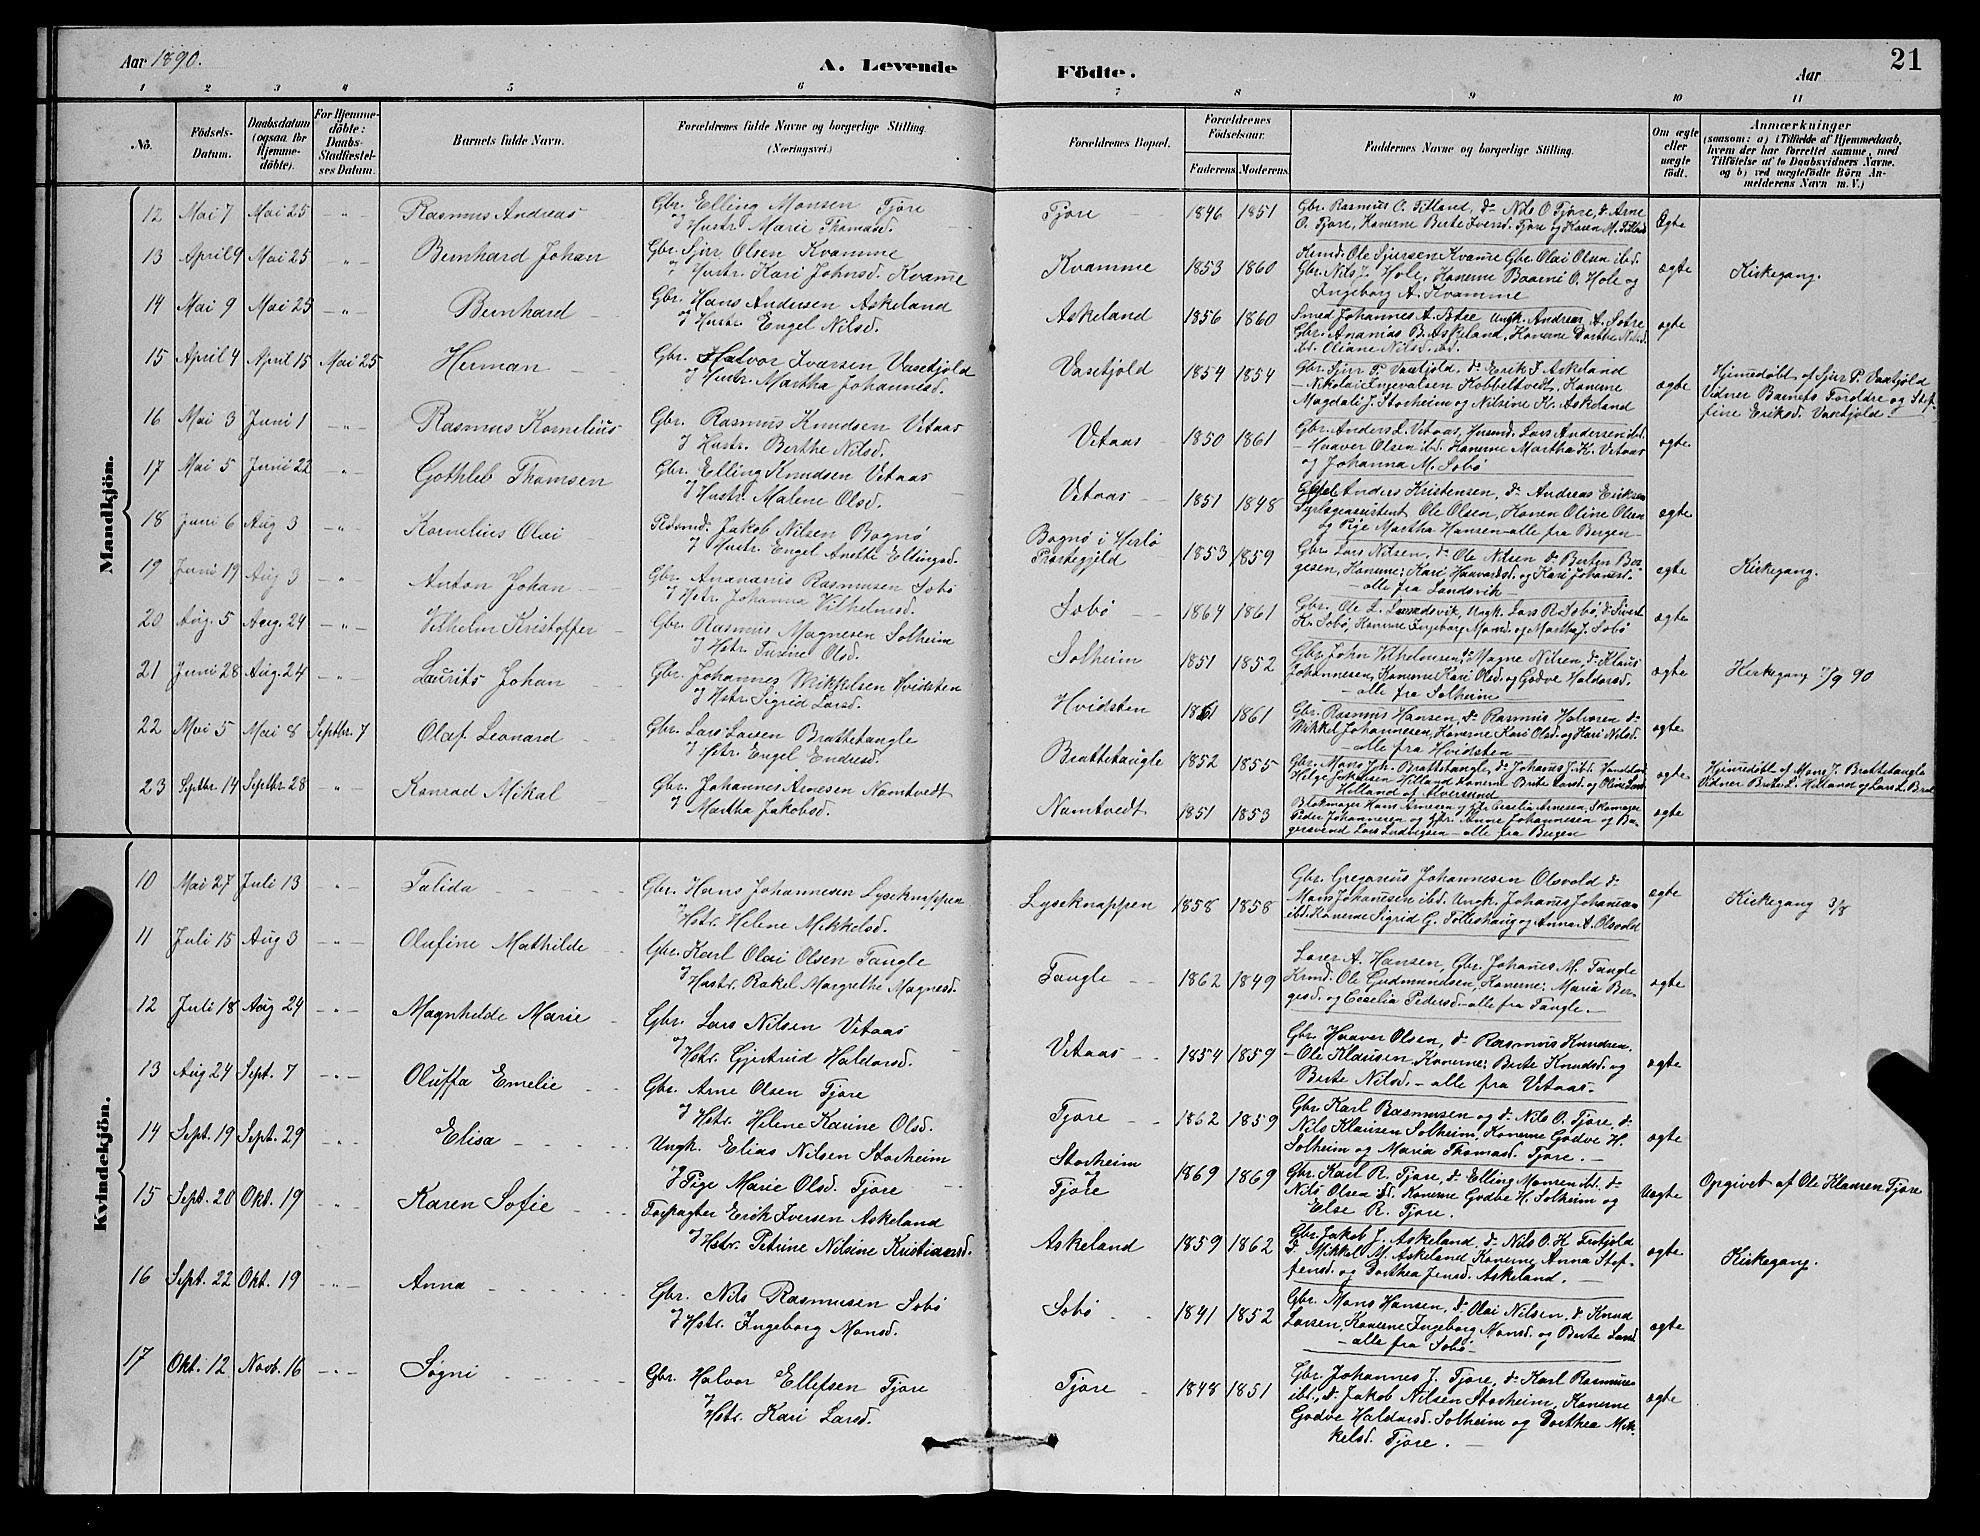 Aar 1890.
A. Levende
Födte.
Aar
21
1 2 3 4 5 6 7 8 9 10 11
No.
Födsels-Datum.
Daabsdatum (ogsaa for Hjemmedöbte).
For Hjemmedöbte: Daabs-Stadfæstelses Datum.
Barnets fulde Navn.
Forældrenes fulde Navne og borgerlige Stilling. (Næringsvei.)
Forældrenes Bopæl.
Forældrenes Födselsaar.
Faderens Moderens
Faddernes Navne og borgerlige Stilling.
Om ægte eller uægte födt.
Anmærkninger
(saasom: a) i Tilfælde af Hjemmedaab, hvem der har forrettet samme, med Tilföielse af to Daabsvidners Navne. og b) ved uægtefödte Börn Anmelderens Navn m. V.)
Mandkjön.
12 Mai 7 Mai 25 - " - Rasmus Andreas Gbr. Elling Monsen Tjore
Hustr. Marie Thomasd. Tjore 1846 1851 Gbr. Rasmus O. Titland, d⁰ Nils O Tjore, d⁰ Arne
O. Tjore, Konerne Berte Iversd. Tjore og Karen M. Titland Ægte
13 April 9 Mai 25 - " - Bernhard Johan Gbr. Sjur Olsen Kvamme
Hustr. Kari Johnsd. Kvame Kvamme 1853 1860 Ole Sjursen Kvame Gbr. Olai Olsen ibd.
Gbr. Nils J. Hole, Konerne O. Hole og
Ingeborg A. Kvamme ægte Kirkegang.
14 Mai 9 Mai 25 - " - Bernhard Gbr. Hans Andersen Askeland
Hustr. Engel Nilsd. Askeland 1856 1860 Smed Johannes A. Ungk. Andreas A. Sotre
Gbr. Ananias B. Askeland, Konerne Dorthe Nilsd.
ibd. Oliane Nilsd. ibd. ægte
15 April 4 April 15 Mai 25 Herman Gbr. Halvor Iversen Vasetjold
Hustr. Martha Johannesd. Vasetjold 1854 1854 Gbr. Sjur P. Vasetjold, d⁰ Erik I Askeland
- Nikolai Ingevalsen Kobbeltvedt, Konerne
Magdali J. Storheim og Nilsine K. Askeland ægte Hjemmedöbt af Sjur P. Vasetjold
Vidner Barnets Foreldre og Stef-
fine Eriksd. Vasetjold.
16 Mai 3 Juni 1 - " - Rasmus Kornelius Gbr. Rasmus Knudsen Vetaas
Hustr. Berthe Nilsd. Vetaas 1850 1861 Gbr. Anders L. Vetaas, Husmd. Lars Andersen ibd.
- Haaver Olsen ibd. Konerne Martha K. Vetaas
og Johanna M. Sobö ægte
17 Mai 5 Juni 22 - " - Gothleb Thomsen Gbr. Elling Knudsen Vetaas
Hustr. Malene Olsd. Vetaas 1851 1848 Anders Kristensen, d⁰ Andreas Eriksen
Ole Olsen, Konen Oline Olsen
og Pige Martha Hansen - alle fra Bergen ægte
18 Juni 6 Aug 3 - " - Kornelius Olai Jakob Nilsen Bognö
Hustr. Engel Anette Ellingsd. Bognö i Herlö
Præstegjeld 1853 1859 Gbr. Lars Nilsen, d⁰ Ole Nilsen d⁰ Berten Ber-
gesen, Konerne: Kari Haavardsd. og Kari Johansd.
- alle fra Landsvik - ægte Kirkegang.
19 Juni 19 Aug 3 - " - Anton Johan Gbr. Ananias Rasmusen Sobö
Hstr. Johanna Vilhelmsd. Sobö 1864 1861 Gbr. Ole L. Landsvik, Ungk. Lars R. Sobö, d⁰ Sivert
K. Sobö, Konerne Ingeborg Monsd. og Martha J. Sobö ægte
20 Aug. 5 Aug. 24 - " - Vilhelm Kristoffer Gbr. Rasmus Magnesen Solheim
Hstr. Turine Olsd. Solheim 1851 1852 Gbr. John Vilhelmsen, d⁰ Magne Nilsen, d⁰ Klaus
Johannesen, Konerne Kari Olsd. og Godve Haldorsd.
- alle fra Solheim - ægte Kirkegang 7/9 90
21 Juni 28 Aug. 24 - " - Laurits Johan Gbr. Johannes Mikkelsen Hvidsten
Hstr. Sigrid Larsd. Hvidsten 1861 1861 Gbr. Rasmus Hansen, d⁰ Rasmus Halvorsen d⁰
Mikkel Johannesen, Konerne Kari Olsd. og Kari Nilsd.
- alle fra Hvidsten - ægte
22 Mai 5 Mai 8 Septbr. 7 Olaf Leonard Gbr. Lars Larsen Brattetangle
Hstr. Engel Endresd. Brattetangle 1852 1855 Gbr. Mons Joh. Brattetangle, d⁰ Johanes J. ibd.
Helge Jakobsen Hilland Konerne Brite Larsd. og Oline Larsd
Hilland af Alversund ægte Hjemmedöbt af Mons J. Brattetangle
Vidner Brite L. Hilland og Lars L. Brat.
23 Septbr. 14 Septbr. 28 - " - Konrad Mikal Gbr. Johannes Arnesen Namtvedt
Martha Jakobsd. Namtvedt 1851 1853 Blokmager Hans Arnesen og Hstr. Cecelia Arnesen, Skomager
Peder Johannesen og Hstr. Anne Johannesen og Ba-
gersvend Lars Ludvigsen - alle fra Bergen ægte
Kvindekjön.
10 Mai 27 Juli 13 - " - Talida Gbr. Hans Johannesen Lyseknappen
Hstr. Helene Mikkelsd. Lyseknappen 1858 1858 Gbr. Gregarius Johannesen Olsvold d⁰
Mons Johanesen ibd. Ungk. Johanes Johannesen
ibd. Konerne Sigrid G. Totleshaug og Anna A. Olsvold ægte Kirkegang 3/8
11 Juli 15 Aug 3 - " - Olufine Mathilde Gbr. Karl Olai Olsen Tangle
Hustr. Rakel Margrethe Magnesd. Tangle 1862 1849 Lærer A. Hansen, Gbr. Johanes M. Tangle
Krmd. Ole Gudmundsen, Konerne: Maria Ber-
gesd. og Cecelia Pedersd. - alle fra Tangle. - ægte
12 Juli 18 Aug 24 - " - Magnhilde Marie Gbr. Lars Nilsen Vetaas
Hstr. Gjertrud Haldorsd. Vetaas 1854 1859 Gbr. Haaver Olsen, d⁰ Rasmus Knudsen.
- Ole Klausen, Konerne: Berte Knudsd. og
Berte Nilsd. - alle fra Vetaas. - ægte
13 Aug 24 Sept. 7 - " - Oluffa Emelie Gbr. Arne Olsen Tjore
Hstr. Helene Karine Olsd. Tjore 1862 1859 Gbr. Karl Rasmusen og d⁰ Nils O. Tjore, d⁰
Nils Klausen Solheim, Konerne Godve H.
Solheim og Maria Thomasd. Tjore. - ægte
14 Sept. 19 Sept. 29 - " - Elisa Ungk. Elias Nilsen Storheim
Pige Marie Olsd. Tjore Storheim
og
Tjore 1869 1869 Gbr. Karl R. Tjore, d⁰ Elling Monsen ibd. d⁰
Nils Olsen ibd. Konerne Godve H. Solheim og
Else R. Tjore. Uægte Opgivet af Ole Klausen Tjore
15 Sept. 20 Okt. 19 - " - Karen Sofie Forpagter Erik Iversen Askeland
Hstr. Petrine Nilsine Kristiansd. Askeland 1859 1862 Gbr. Jakob J. Askeland, d⁰ Nils O. H. Testjold
d⁰ Mikkel M. Askeland, Konerne Anna Stef-
fensd. og Dorthea Jensd. Askeland. - ægte Kirkegang.
16 Sept. 22 Okt. 19 - " - Anna Gbr. Nils Rasmusen Sobö
Hstr. Ingeborg Monsd. Sobö 1841 1852 Gbr. Mons Hansen, d⁰ Olai Nilsen, d⁰ Knud
Larsen, Konerne Ingeborg Monsd. og Berte Larsd
- alle fra Sobö - ægte
17 Okt. 12 Novb. 16 - " - Søgni Gbr. Halvor Ellefsen Tjore
Hstr. Kari Larsd. Tjore 1848 1851 Gbr. Johannes J. Tjore, d⁰ Karl Rasmusen
ibd., d⁰ Jakob Nilsen Storheim, Konerne
Godve Haldorsd. Solheim og Dorthea Mik-
kelsd. Tjore. - ægte